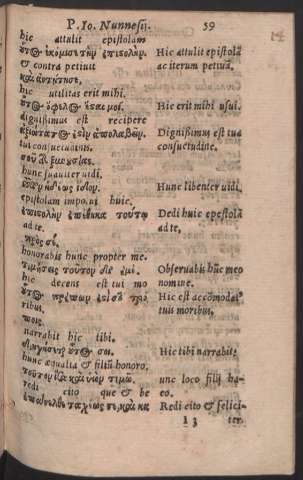 P. Io. Nunnesij. 59
hic attulit epistolam
οὗτος ἐκόμισε τὴν ἐπιστολὴν. Hic attulit epistolā
& contra petiuit ac iterum petiuit.
καὶ ἀντῄτησε,
hic utilitas erit mihi.
οὗτος ὄφελος ἔσται μοί. Hic erit mihi usui.
dignissimus est recipere
ἀξιώτατος ἐςὶν ἀπολαβεῖν. Dignissimus est tua
tui consuetudinis. consuetudine.
hunc suauiter uidi.
Hunc libenter uidi.
epistolam imposui huic,
ἐπιςολὴν ἐπέθηκα τούτῳ Dedi huic epistolā
ad te. ad te,
πρὸς σὺ,
honorabis hunc propter me.
τιμήσεις τοῦτον δι᾽ ἐμέ. Obseruabis hūc meo
hic decens est tui mo nomine.
Hic est accomodatꝰ
ribus. tuis moribus,
ποις.
narrabit hic tibi.
διηγήσεται οὗτος σοι. Hic tibi narrabit:
hunc æqualia & filiū honoro,
unc loco filij ha-
redi cito que & be eo.
Redi cito & felici-
l 3 ter.